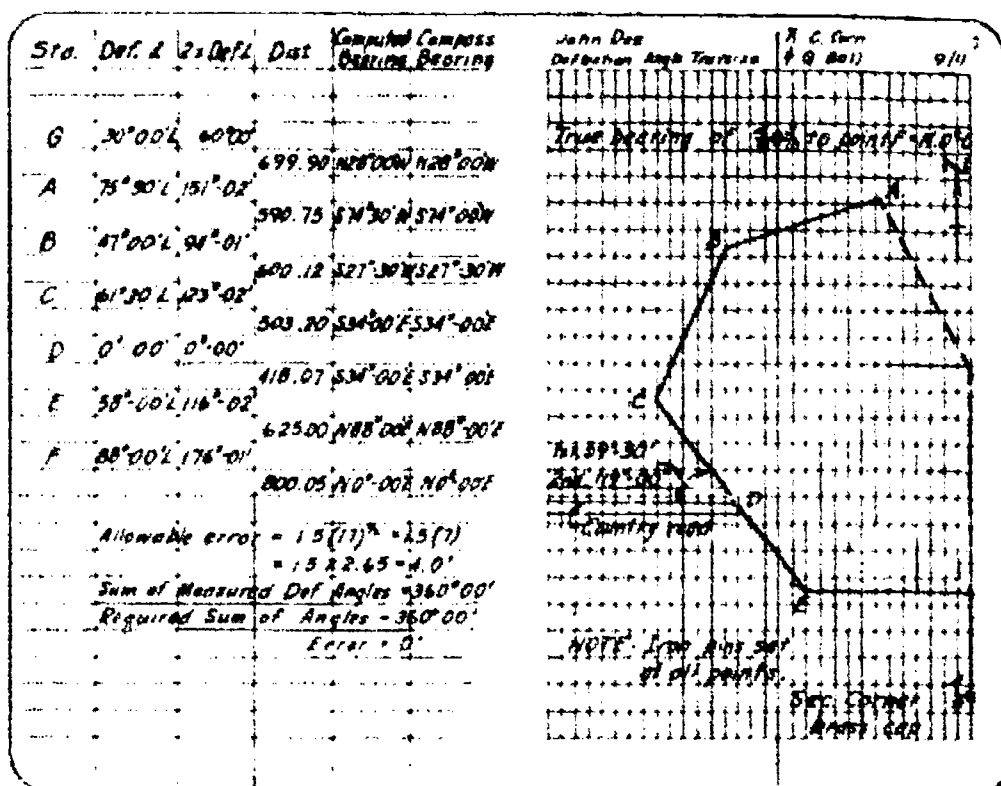 Sta. Def. ∠ 2x Def ∠ Dist Computed Bearing Compass Bearing
G 30°00'L 60°00'
699.90 N28°00'W N28°00'W
A 75°30'L 151°-02'
590.75 S74°30'W S74°00'W
B 47°00'L 94°-01'
600.12 S27°-30'W S27°-30'W
C 61°30'L 123°-02'
503.20 S34°00'E S34°-00'E
D 0°00' 0°00'
418.07 S34°-00'E S34°00'E
E 58°-00'L 116°-02'
625.00 N88°00'E N88°-00'E
F 88°-00'L 176°-01'
800.05 N0°-00'E N0°00'E
Allowable error = 1.5(7)½ = 1.5(7)
= 1.5 x 2.65 = 4.0'
Sum of Measured Def Angles = 360°00'
Required Sum of Angles = 360°00'
Error = 0'
John Doe
Deflection Angle Traverse
X C. Corn
φ Q Ball
9/11
True bearing of to point
A
B
C
D
E
1st 59°30'
2nd 119°00'
Country road
NOTE: Iron pins set
at all points.
Sec. Corner
Brass cap